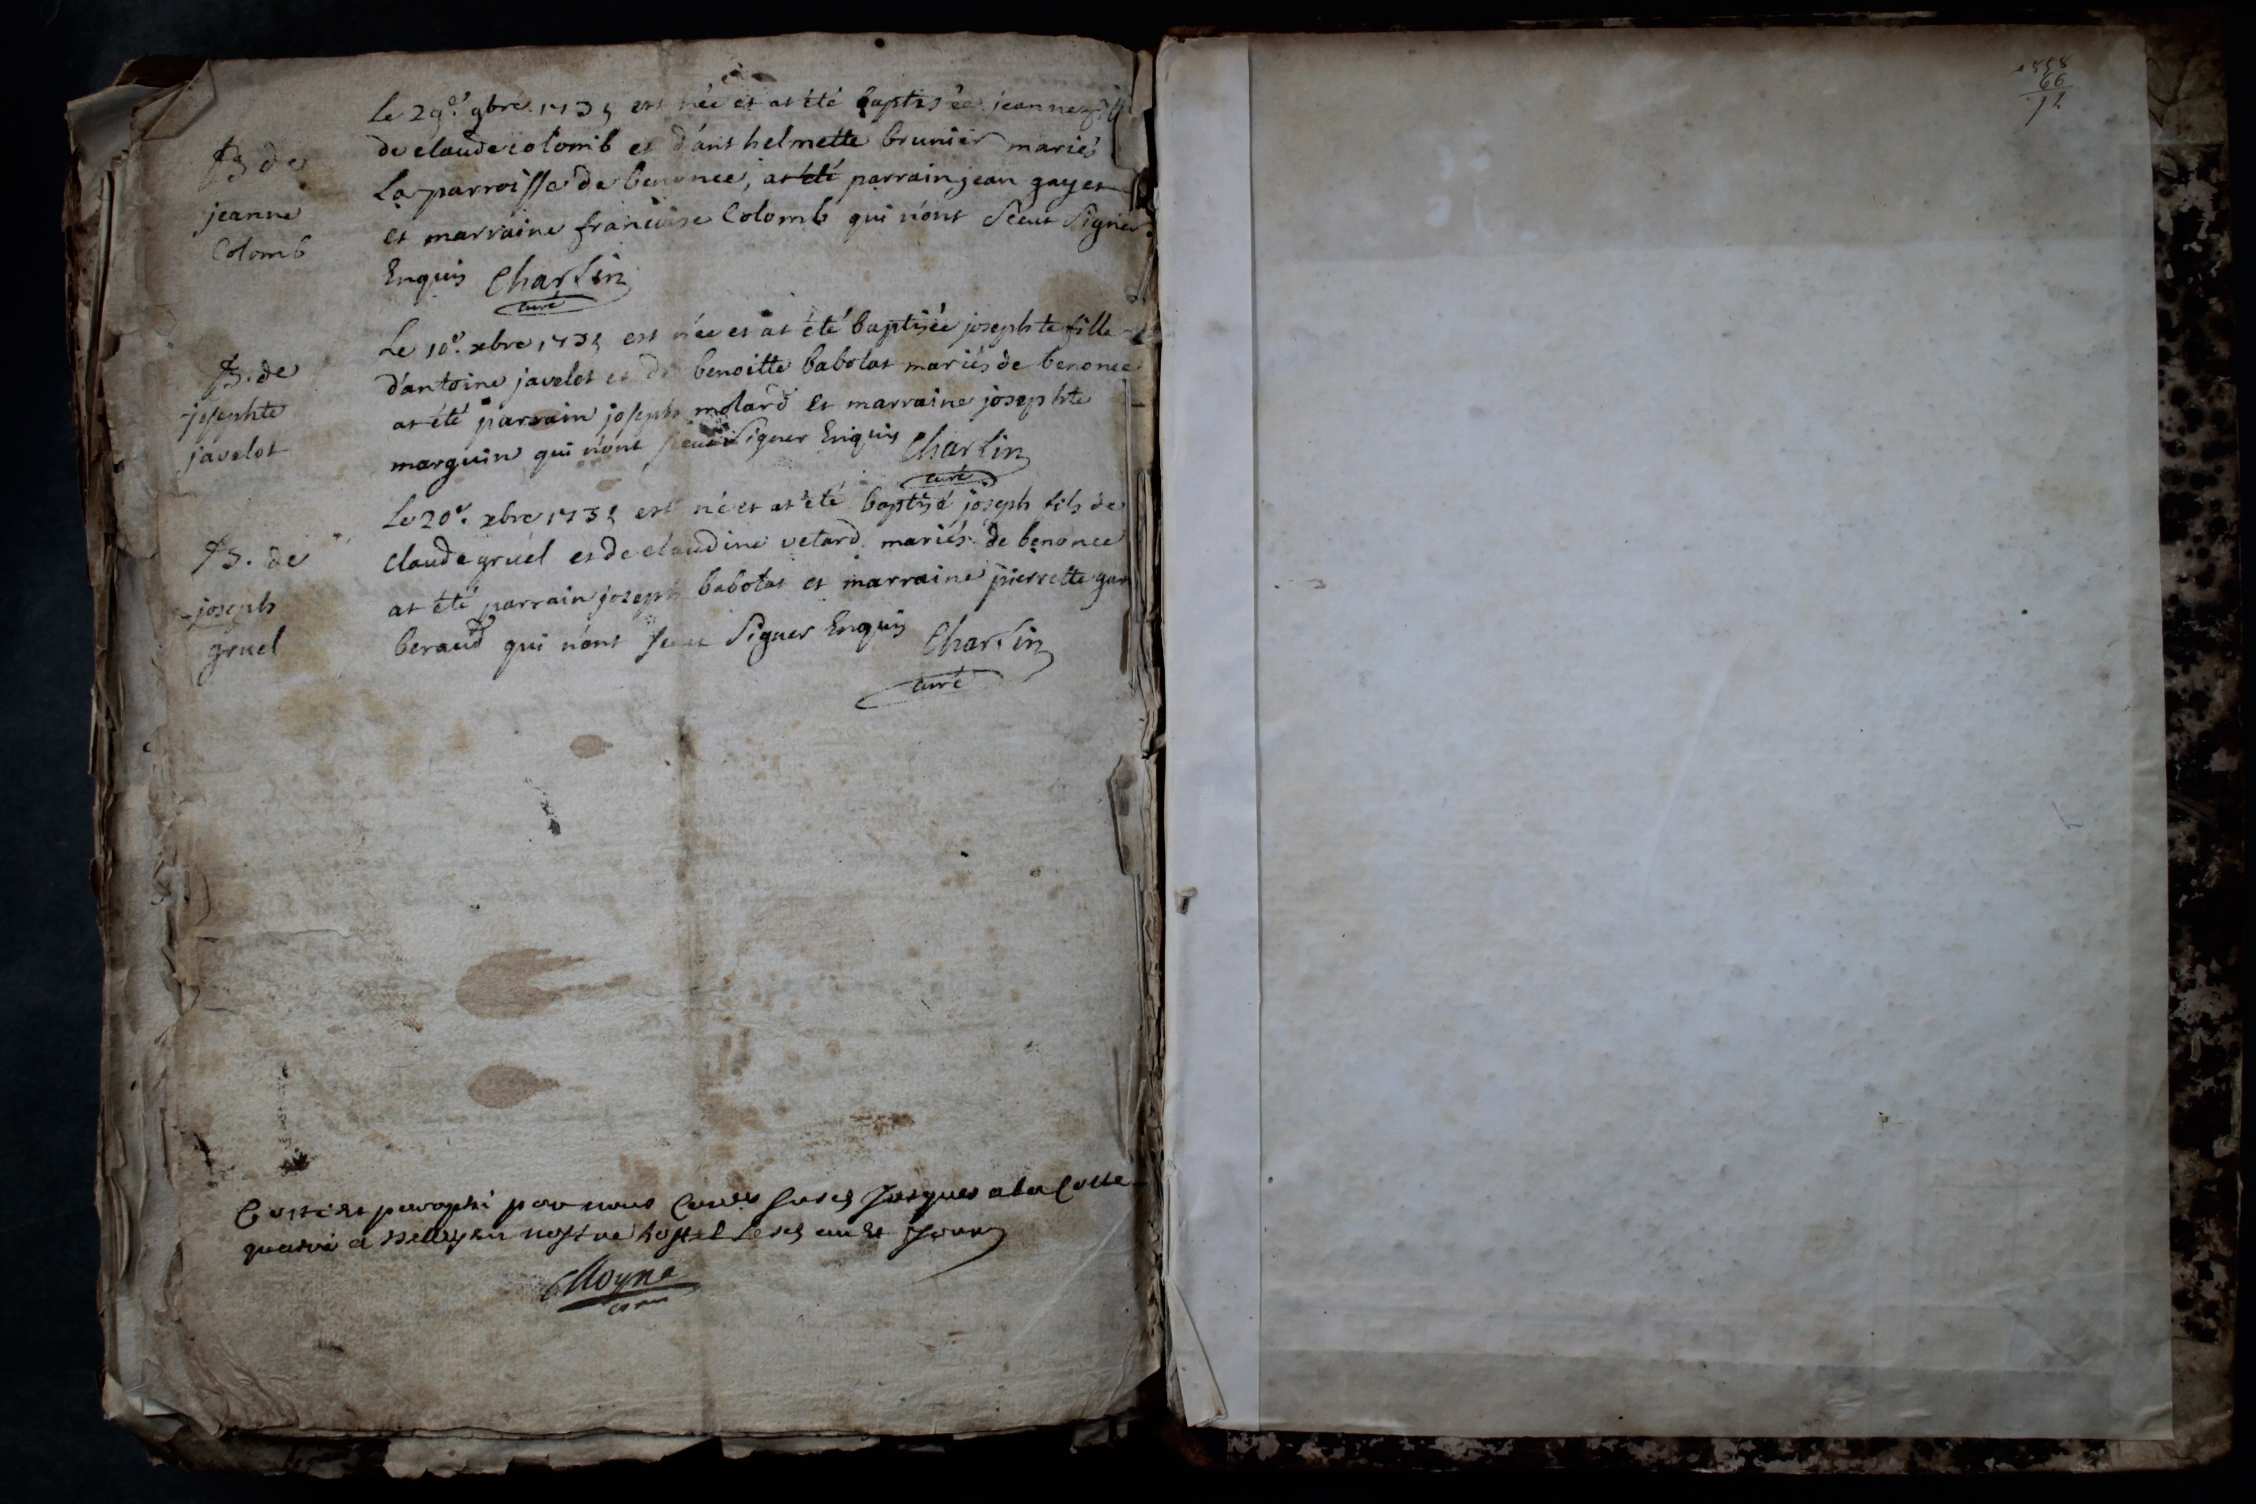 Le 29e. 9bre. 1735 est née et at été baptisée jeanne fille
de claude colomb et d'anthelmette brunier mariés
B de
La parroisse de benonce, at été parrain jean gayet
jeanne
et marraine francoise Colomb qui n'ont sceut signer
Colomb
Enquis Charlin
curé
Le 10e. xbre 1735 est née et at été baptisée josephte fille
B. de
d'antoine javelot et de benoitte babolat mariés de benonce
josephte
at été parrain joseph molard et marraine josephte
javelot
marguin qui n'ont sceut signer Enquis Charlin
curé
Le 20e. xbre 1735 est né et at été baptisé joseph fils de
B. de
claude gruel et de claudine vetard mariés de benonce
joseph
at été parrain joseph babolat et marraine pierrette gar
gruel
beraud qui n'ont sceut signer Enquis Charlin
curé
paraphé par nous jusques a la Cotte
quatre a Belley en nostre hostel et jour
Moyne